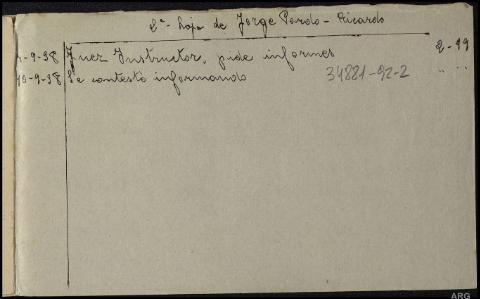 2ª hoja de Jorge Pardo - Ricardo
-9-38 Juez Instructor, pide informes 2-99
19-9-38 Se contestó informando " "
34881-92-2
ARG